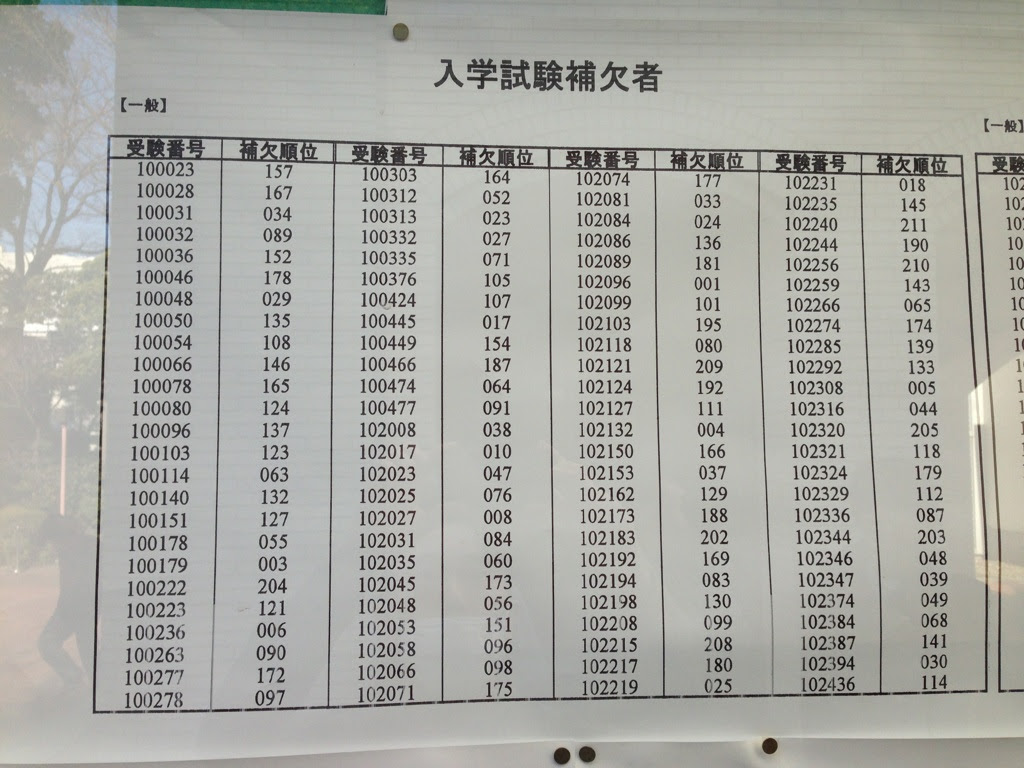 入学試験補欠者
【一般】
【一般】
受験番号 補欠順位 受験番号 補欠順位 受験番号 補欠順位 受験番号 補欠順位
100023 157 100303 164 102074 177 102231 018
100028 167 100312 052 102081 033 102235 145
100031 034 100313 023 102084 024 102240 211
100032 089 100332 027 102086 136 102244 190
100036 152 100335 071 102089 181 102256 210
100046 178 100376 105 102096 001 102259 143
100048 029 100424 107 102099 101 102266 065
100050 135 100445 017 102103 195 102274 174
100054 108 100449 154 102118 080 102285 139
100066 146 100466 187 102121 209 102292 133
100078 165 100474 064 102124 192 102308 005
100080 124 100477 091 102127 111 102316 044
100096 137 102008 038 102132 004 102320 205
100103 123 102017 010 102150 166 102321 118
100114 063 102023 047 102153 037 102324 179
100140 132 102025 076 102162 129 102329 112
100151 127 102027 008 102173 188 102336 087
100178 055 102031 084 102183 202 102344 203
100179 003 102035 060 102192 169 102346 048
100222 204 102045 173 102194 083 102347 039
100223 121 102048 056 102198 130 102374 049
100236 006 102053 151 102208 099 102384 068
100263 090 102058 096 102215 208 102387 141
100277 172 102066 098 102217 180 102394 030
100278 097 102071 175 102219 025 102436 114